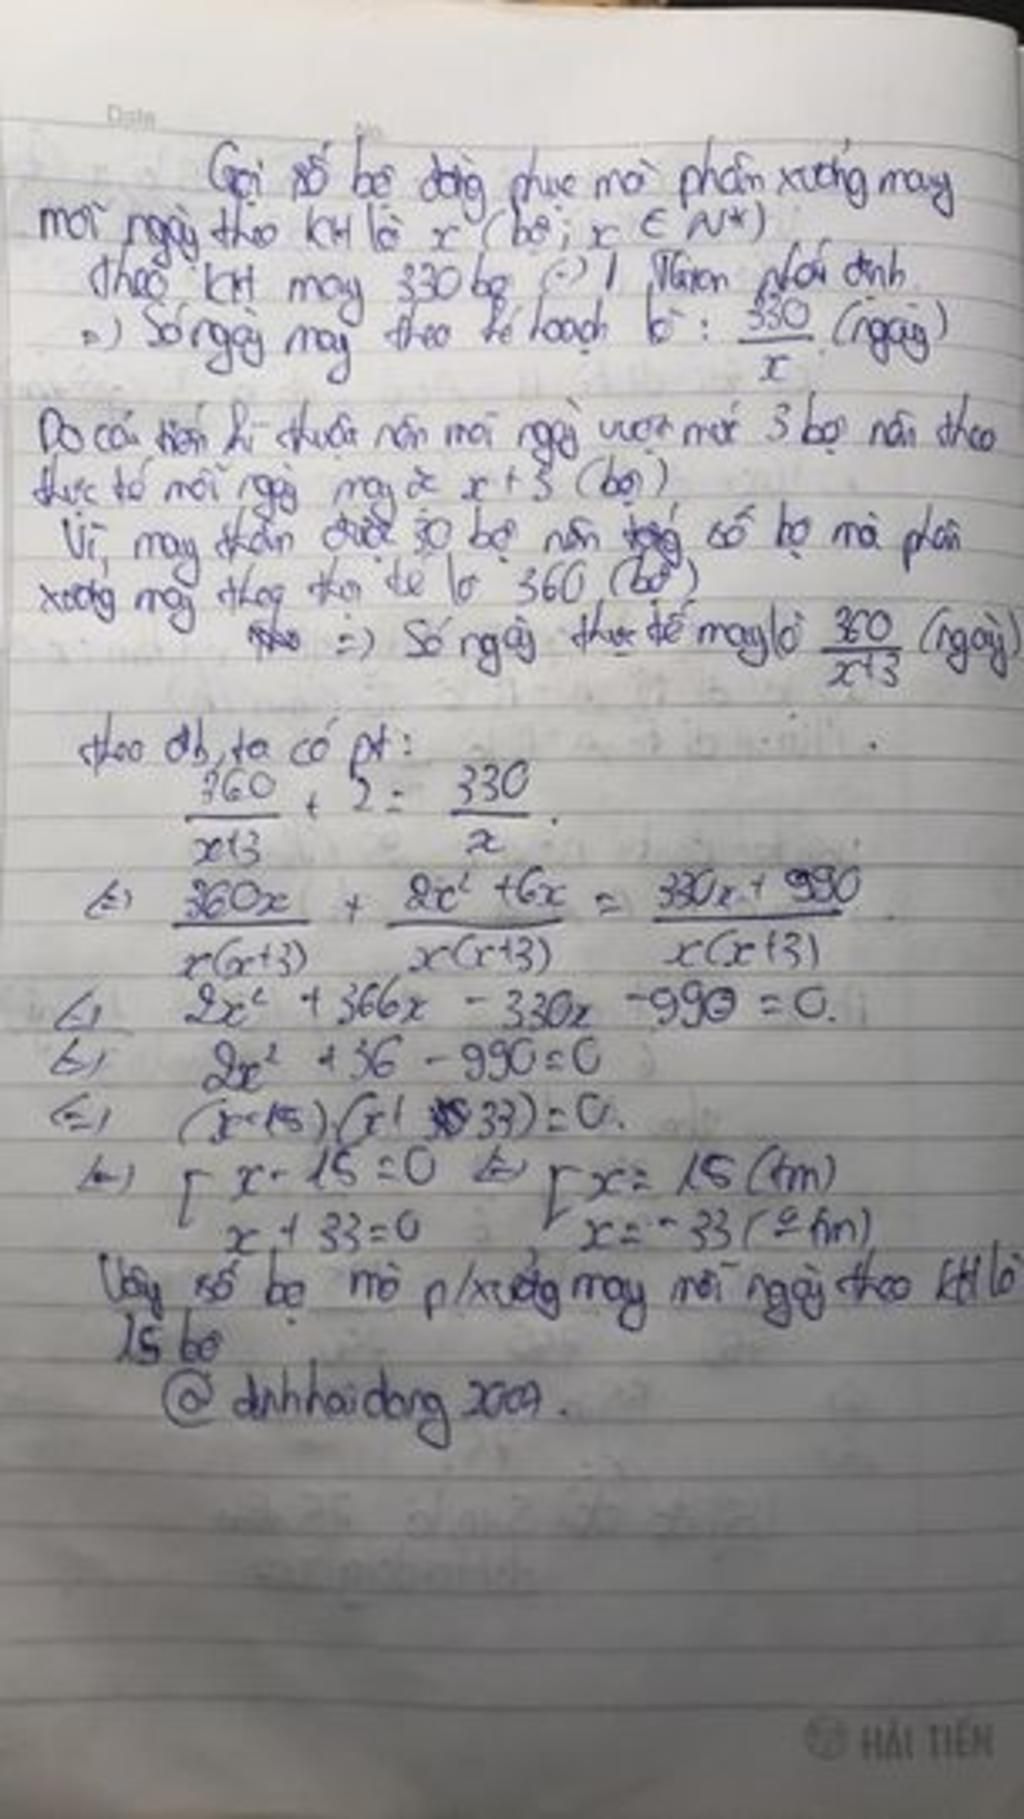 Date
No.
Gọi số bộ đồng phục mà phân xưởng may
mỗi ngày theo KH là x (bộ; x ∈ N*)
theo KH may 330 bộ (-) 1 nhất định
=) Số ngày may theo kế hoạch là: 330/x (ngày)
Do cải tiến kĩ thuật nên mỗi ngày vượt mức 3 bộ nên theo
thực tế mỗi ngày may đc x+3 (bộ)
Vì may thêm được 30 bộ nên tổng số bộ mà phân
xưởng may theo tế là 360 (bộ)
=) Số ngày thực tế may là 360/x+3 (ngày)
theo đb, ta có pt:
360/x+3 + 2 = 330/x.
(=) 360x/x(x+3) + 2x² +6x/x(x+3) = 330x + 990/x(x+3)
(=) 2x² + 366x - 330x - 990 = 0.
(=) 2x² + 36 - 990 = 0
(=) (x-15).(x+33)=0.
(=) [ x - 15 = 0 (=) [ x = 15 (tm)
x + 33 = 0 x = -33 (o tm)
Vậy số bộ mà p/xưởng may mỗi ngày theo KH là
15 bộ
@ dinhhaidang 2007.
HẢI TIẾN